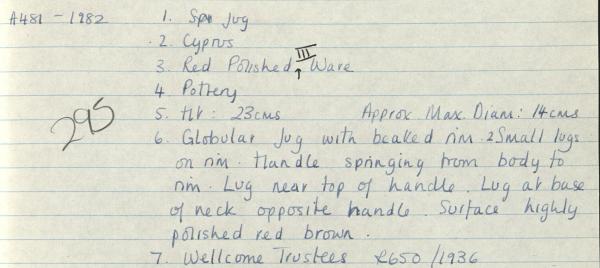 A481 - 1982 1. Spr Jug
2. Cyprus
3. Red Polished III Ware
4. Pottery
295
5. Ht: 23cms Approx Max. Diam: 14cms
6. Globular Jug with beaked rim. 2 Small lugs
on rim. Handle springing from body to
rim. Lug near top of handle. Lug at base
of neck opposite handle. Surface highly
polished red brown.
7. Wellcome Trustees R650/1936